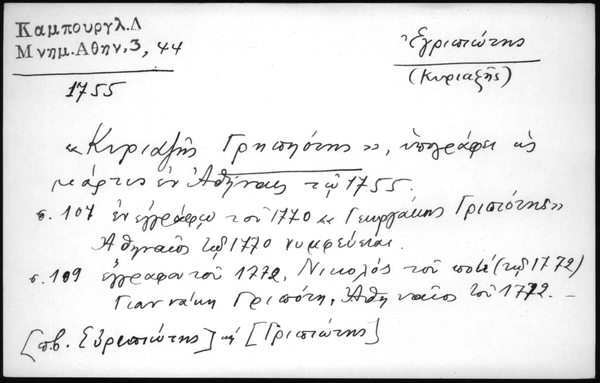 Καμπουργλ.Δ
Μνημ.Αθην,3, 44
1755
Ἐγριπιώτης
(Κυριαζῆς)
«Κυριαζῆς Γρηπηότης», ὑπογράφει ὡς
μάρτυς ἐν Ἀθήναις τῷ 1755.
σ. 107 ἐν ἐγγράφῳ τοῦ 1770 «Γεωργάκης Γριπιότης»
Ἀθηναῖος τῷ 1770 νυμφεύεται.
σ. 109 ἔγγραφον τοῦ 1772, Νικολός τοῦ ποτέ (τῷ 1772)
Γιαννάκη Γριπότη, Ἀθηναῖος τοῦ 1772. –
[πβ. Εὐριπιώτης] καί [Γριπιώτης]